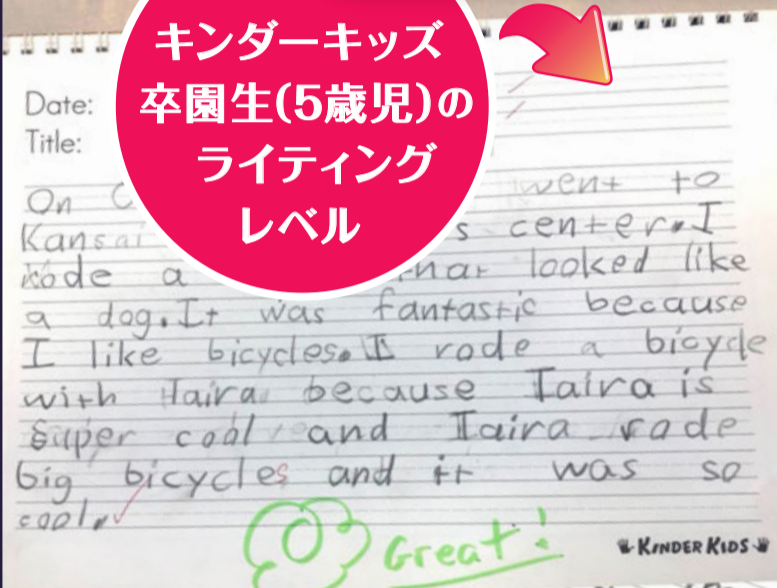 キンダーキッズ
卒園生(5歳児)の
ライティング
レベル
Date:
Title:
On C went to
Kansai s center. I
rode a that looked like
a dog. It was fantastic because
I like bicycles. I rode a bicycle
with Taira because Taira is
super cool and Taira rode
big bicycles and it was so
cool.
Great!
KINDER KIDS